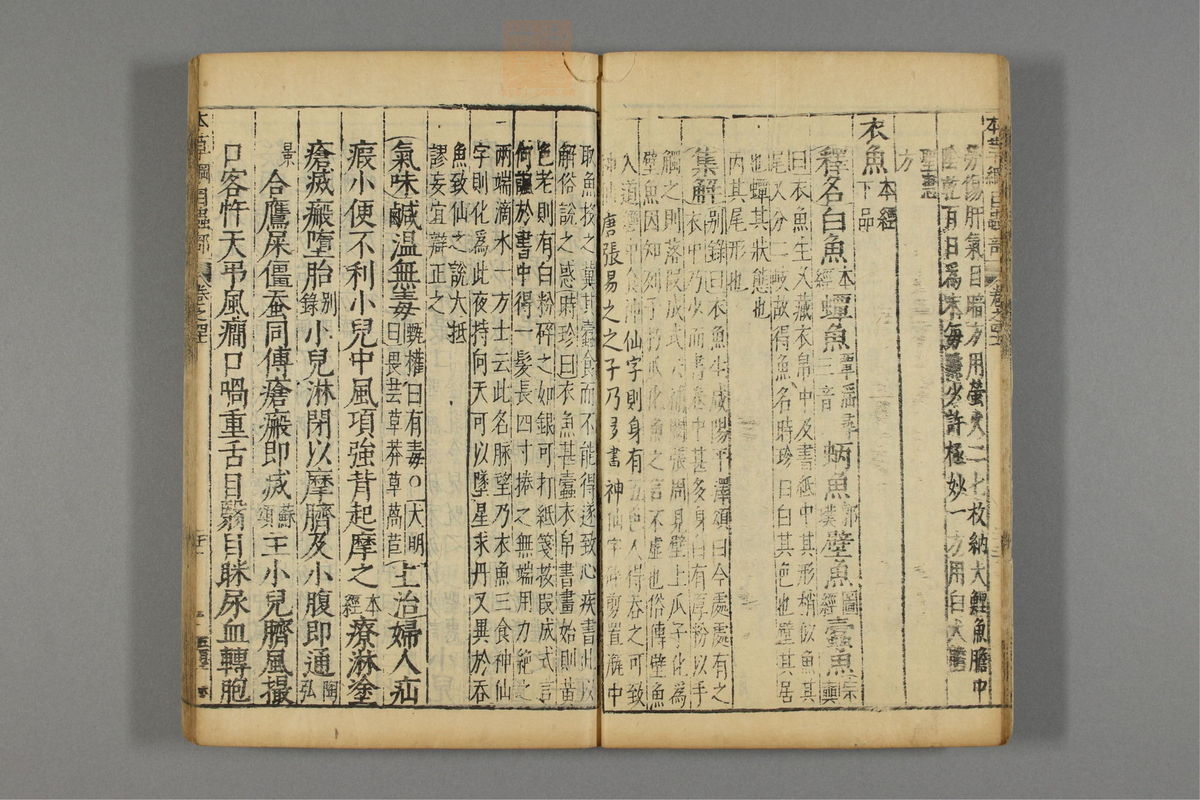 本草綱目蟲部
勞傷肝氣目暗方用螢火二七枚納大鯉魚膽中
陰乾百日為末每點少許極妙一方用白犬膽
聖惠
方
衣魚本經下品
釋名白魚本經蟫魚覃淫尋三音蛃魚郭璞壁魚圖經蠹魚宗奭
曰衣魚生久藏衣帛中及書紙中其形稍似魚其
尾又分二岐故得魚名時珍曰白其色也壁其居
也蟫其狀態也
丙其尾形也
集解别錄曰衣魚生咸陽平澤頌曰今處處有之
衣中乃少而書卷中甚多身白有厚粉以手
觸之則落段成式云補闕張周見壁上瓜子化為
壁魚因知列子朽瓜化魚之言不虛也俗傳壁魚
入道經中食神仙字則身有五色人得吞之可致
神仙唐張易之之子乃多書神仙字碎剪置瓶中
取魚投之冀其蠹食而不能得遂致心疾書此以
解俗說之惑時珍曰衣魚其蠹衣帛書畫始則黃
色老則有白粉碎之如銀可打紙箋按段成式言
何諷於書中得一髮長四寸捲之無端用力絶之
兩端滴水一方士云此名脉望乃衣魚三食神仙
字則化為此夜持向天可以墜星求丹又異於吞
魚致仙之說大抵
謬妄宜辯正之
氣味鹹温無毒甄權曰有毒○大明曰畏芸草莽草萵苣主治婦人疝
瘕小便不利小兒中風項強背起摩之本經療淋塗
瘡滅瘢墮胎别錄小兒淋閉以摩臍及小腹即通陶弘
景合鷹屎僵蠶同傅瘡瘢即滅蘇頌主小兒臍風撮
口客忤天弔風癇口喎重舌目翳目眯尿血轉胞
本草綱目蟲部